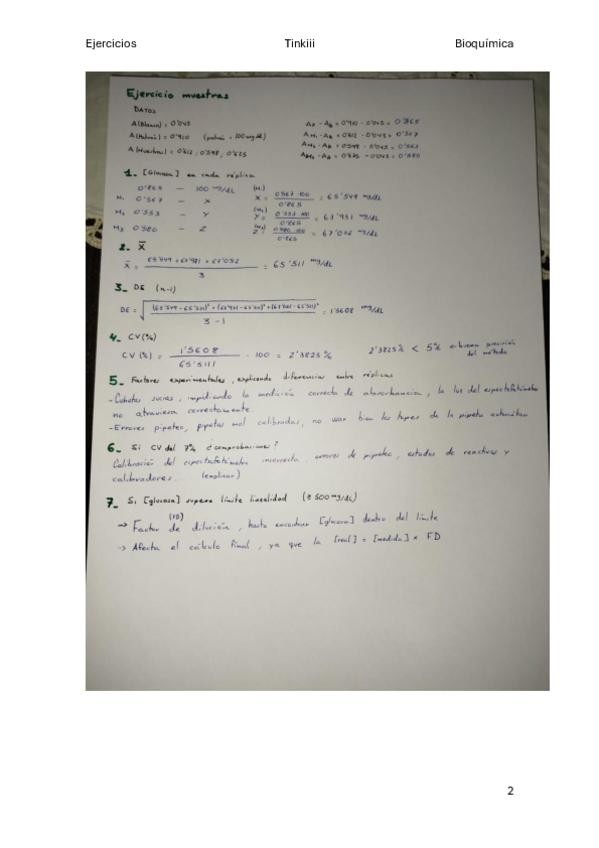 Ejercicios Tinkiii Bioquímica
Ejercicio muestras
DATOS
A(Blanco) = 0'045 AP - AB = 0'910 - 0'045 = 0'865
A(Patrón) = 0'910 (patrón = 100 mg/dL) AM1 - AB = 0'612 - 0'045 = 0'567
A(Muestras) = 0'612, 0'598, 0'625 AM2 - AB = 0'598 - 0'045 = 0'553
AM3 - AB = 0'625 - 0'045 = 0'580
1. [Glucosa] en cada réplica
0'865 — 100 mg/dL (M1)
M1 0'567 — X X = 0'567·100 / 0'865 = 65'549 mg/dL
M2 0'553 — Y (M2) Y = 0'553·100 / 0'865 = 63'931 mg/dL
M3 0'580 — Z (M3) Z = 0'580·100 / 0'865 = 67'052 mg/dL
2. X̄
X̄ = 65'549 + 63'931 + 67'052 / 3 = 65'511 mg/dL
3. DE (n-1)
DE = √ / 3 - 1 = 1'5608 mg/dL
4. CV(%)
CV (%) = 1'5608 / 65'5111 · 100 = 2'3825% 2'3825% < 5% buena precisión
del método
5. Factores experimentales, explicando diferencias entre réplicas
- Cubetas sucias, impidiendo la medición correcta de absorbancia, la luz del espectofotómetro
no atraviesa correctamente.
- Errores pipeteo, pipetas mal calibradas, no usar bien los topes de la pipeta automática
6. Si CV del 7% ¿comprobaciones?
Calibración del espectofotómetro incorrecta, errores de pipeteo, estados de reactivos y
calibradores. (explicar)
7. Si [glucosa] supera límite linealidad (≥ 500 mg/dL)
(FD)
→ Factor de dilución, hasta encontrar [glucosa] dentro del límite
→ Afecta el cálculo final, ya que la [real] = [medida] × FD
2